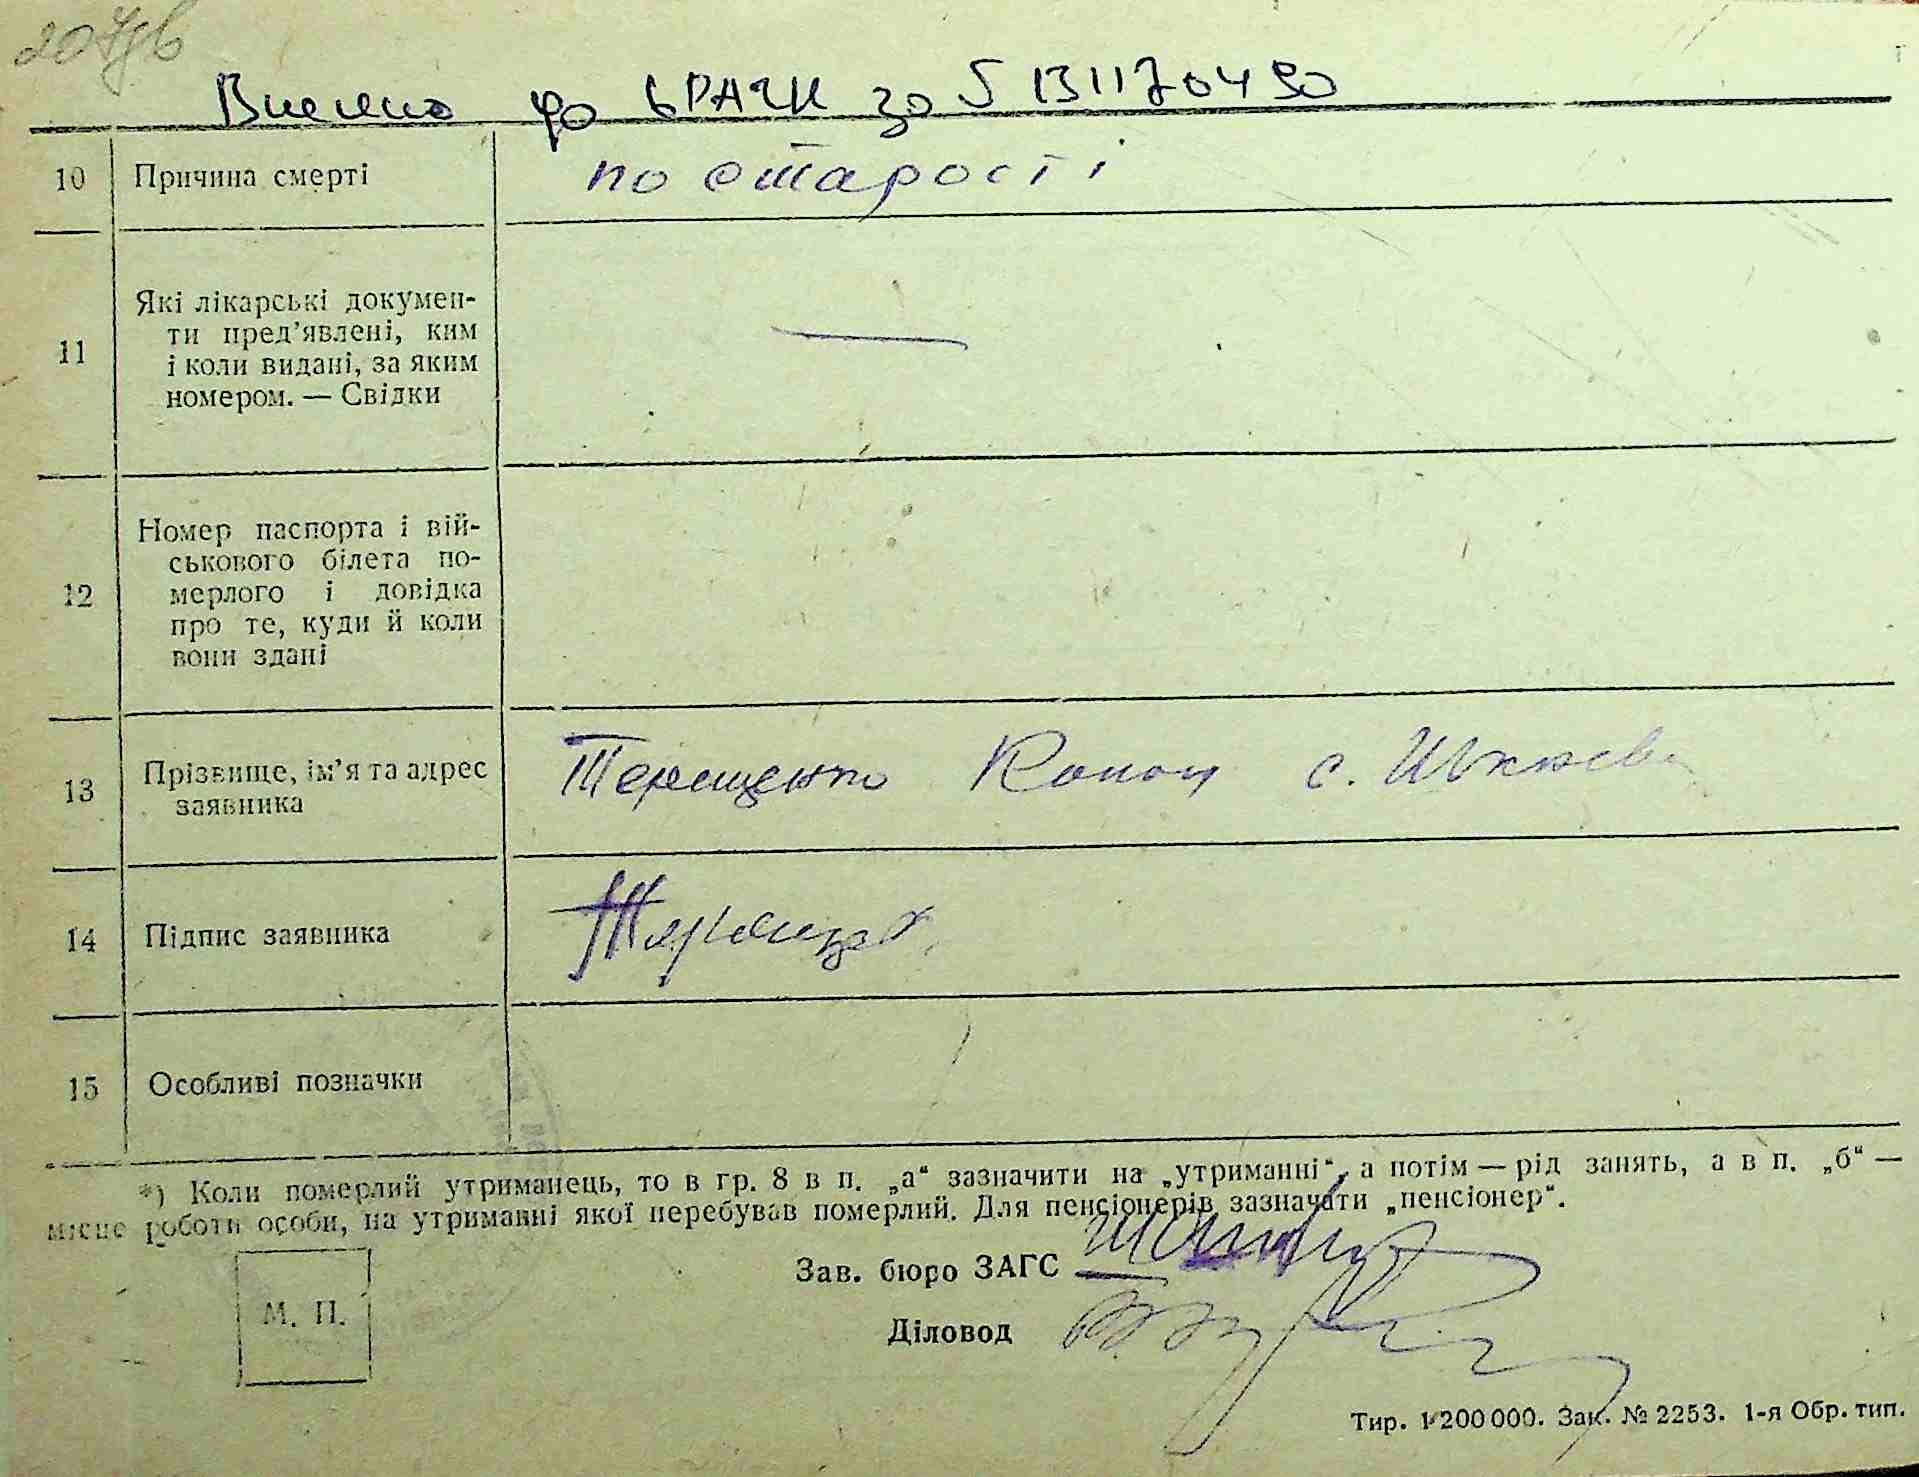 207зв
Внесено до ДРАЦС за № 5 131170490
10 Причина смерті по старості
11 Які лікарські докумен-
ти пред’явлені, ким
і коли видані, за яким
номером. — Свідки —
12 Номер паспорта і вій-
ськового білета по-
мерлого і довідка
про те, куди й коли
вони здані
13 Прізвище, ім’я та адрес
заявника Терещенко с.
14 Підпис заявника
15 Особливі позначки
*) Коли померлий утриманець, то в гр. 8 в п. „а“ зазначити на „утриманні“, а потім — рід занять, а в п. „б“ —
місце роботи особи, на утриманні якої перебував померлий. Для пенсіонерів зазначати „пенсіонер“.
Зав. бюро ЗАГС
М. П.
Діловод
Тир. 1 200 000. Зак. № 2253. 1-я Обр. тип.